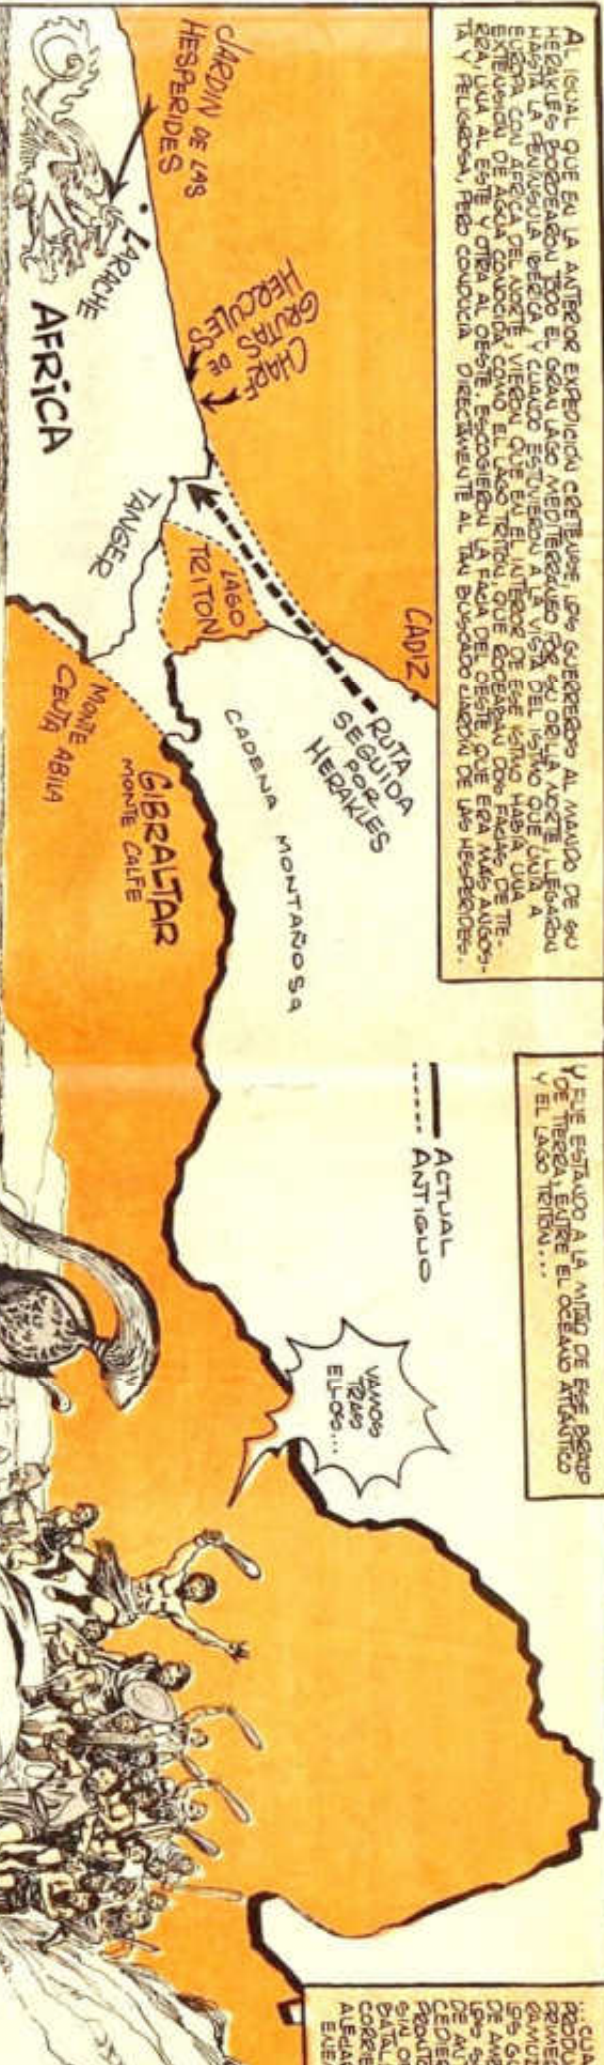 AL IGUAL QUE EN LA ANTERIOR EXPEDICIÓN CRETENSE, LOS GUERREROS AL MANDO DE SU
HERAKLES BORDEARON TODO EL GRAN LAGO MEDITERRANEO POR SU ORILLA NORTE LLEGARON
HASTA LA PENINSULA IBERICA Y CUANDO ESTUVIERON A LA VISTA DEL ISTMO QUE UNIA A
EUROPA CON AFRICA DEL NORTE, VIERON QUE EN EL INTERIOR DE ESE ISTMO HABIA UNA
EXTENSION DE AGUA CONOCIDA COMO EL LAGO TRITON QUE RODEABAN DOS FAJAS DE TIE-
RRA UNA AL ESTE Y OTRA AL OESTE. ESCOGIERON LA FAJA DEL OESTE QUE ERA MAS ANGOS-
TA Y PELIGROSA, PERO CONDUCIA DIRECTAMENTE AL TAN BUSCADO JARDIN DE LAS HESPERIDES.
JARDIN DE LAS
HESPERIDES
LARACHE
CHARF
GRUTAS DE
HERCULES
AFRICA
TANGER
LAGO
TRITON
CADIZ
RUTA
SEGUIDA
POR
HERAKLES
MONTE
CEUTA ABILA
CADENA MONTAÑOSA
GIBRALTAR
MONTE CALPE
ACTUAL
ANTIGUO
Y FUE ESTANDO A LA MITAD DE ESE PASO
DE TIERRA, ENTRE EL OCEANO ATLANTICO
Y EL LAGO TRITON...
VAMOS
TRAS
ELLOS...
PRIMER
LOS
DE
DE
PRONTO
SIN
BATAL